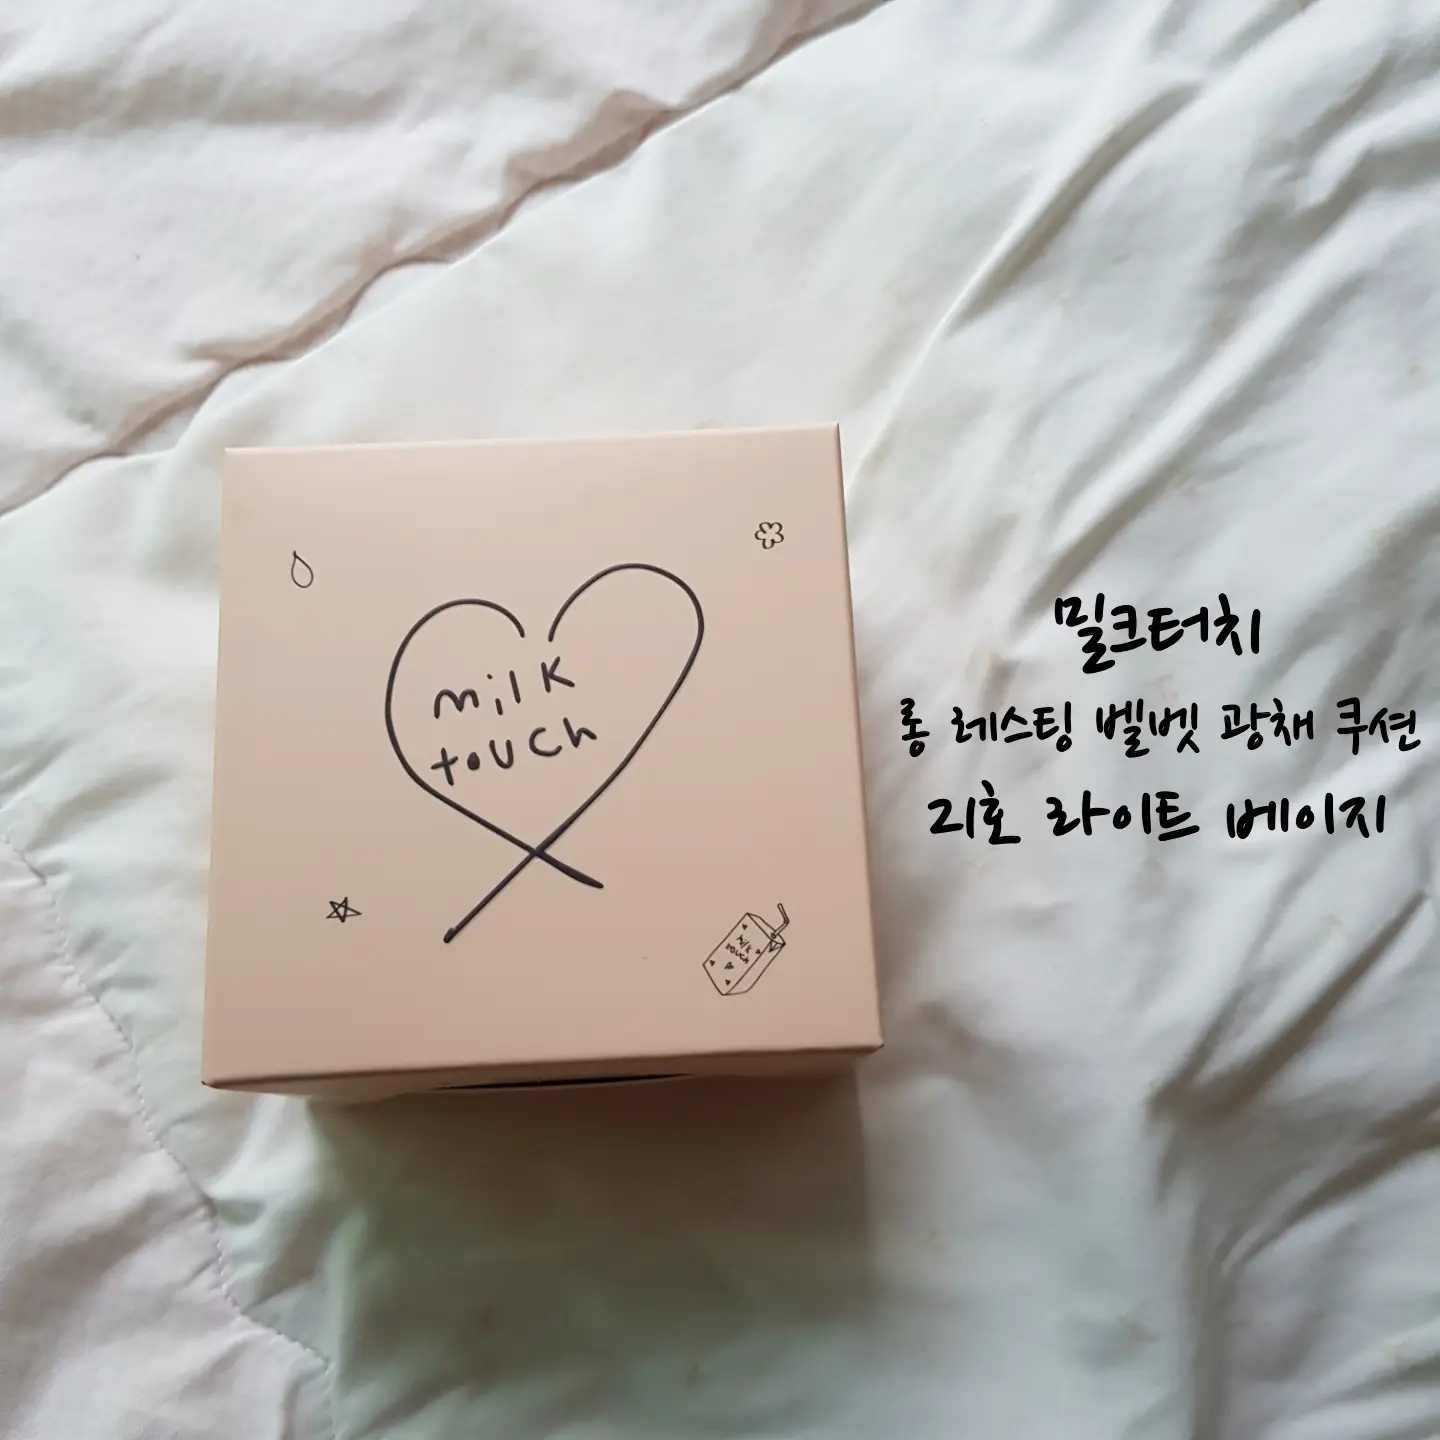 milk
touch
milk
touch
밀크터치
롱 레스팅 벨벳 광채 쿠션
21호 라이트 베이지